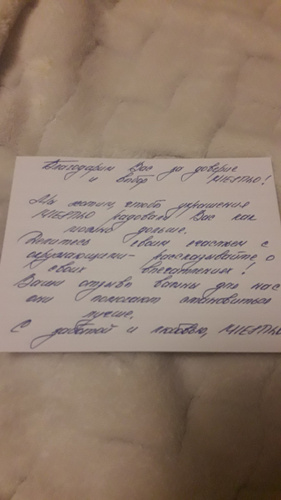 Благодарим Вас за доверие
и выбор MIESTILO!
Мы хотим, чтоб украшения
MIESTILO радовали Вас как
можно дольше.
Делитесь своим счастьем с
окружающими - рассказывайте о
своих впечатлениях!
Ваши отзывы важны для нас
они помогают становиться
лучше,
С заботой и любовью, MIESTILO